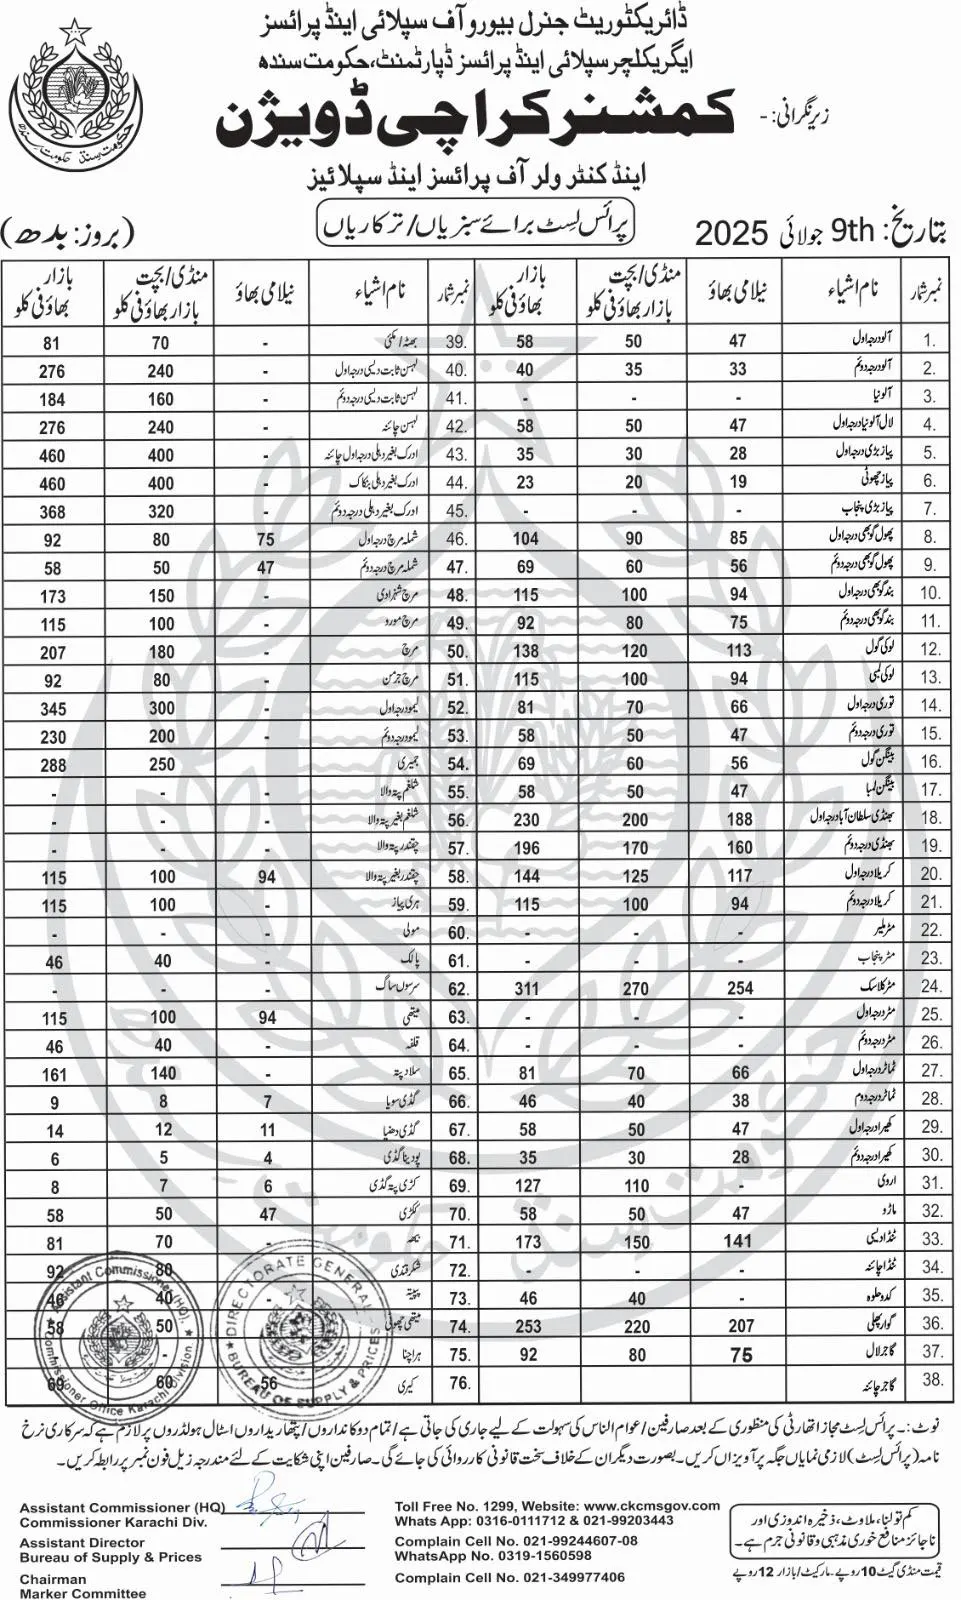 ڈائریکٹوریٹ جنرل بیورو آف سپلائی اینڈ پرائسز
ایگریکلچر سپلائی اینڈ پرائسز ڈپارٹمنٹ، حکومت سندھ
زیر نگرانی: - کمشنر کراچی ڈویژن
اینڈ کنٹرولر آف پرائسز اینڈ سپلائیز
بتاریخ: 9th جولائی 2025 پرائس لسٹ برائے سبزیاں/ترکاریاں (بروز: بدھ)
نمبر شمار نام اشیاء نیلامی بھاؤ منڈی/بچت بازار بھاؤ فی کلو بازار بھاؤ فی کلو نمبر شمار نام اشیاء نیلامی بھاؤ منڈی/بچت بازار بھاؤ فی کلو بازار بھاؤ فی کلو
1. آلو درجہ اول 47 50 58 39. بھٹہ/مکئی - 70 81
2. آلو درجہ دوئم 33 35 40 40. لہسن ثابت دیسی درجہ اول - 240 276
3. آلو نیا - - - 41. لہسن ثابت دیسی درجہ دوئم - 160 184
4. لال آلو نیا درجہ اول 47 50 58 42. لہسن چائنہ - 240 276
5. پیاز بڑی درجہ اول 28 30 35 43. ادرک بغیر دہلی درجہ اول چائنہ - 400 460
6. پیاز چھوٹی 19 20 23 44. ادرک بغیر دہلی بنکاک - 400 460
7. پیاز بڑی پنجاب - - - 45. ادرک بغیر دہلی درجہ دوئم - 320 368
8. پھول گوبھی درجہ اول 85 90 104 46. شملہ مرچ درجہ اول 75 80 92
9. پھول گوبھی درجہ دوئم 56 60 69 47. شملہ مرچ درجہ دوئم 47 50 58
10. بند گوبھی درجہ اول 94 100 115 48. مرچ شہزادی - 150 173
11. بند گوبھی درجہ دوئم 75 80 92 49. مرچ مورو - 100 115
12. لوکی گول 113 120 138 50. مرچ - 180 207
13. لوکی لمبی 94 100 115 51. مرچ جرمن - 80 92
14. توری درجہ اول 66 70 81 52. لیمو درجہ اول - 300 345
15. توری درجہ دوئم 47 50 58 53. لیمو درجہ دوئم - 200 230
16. بینگن گول 56 60 69 54. جمیری - 250 288
17. بینگن لمبا 47 50 58 55. شلغم پتہ والا - - -
18. بھنڈی سلطان آباد درجہ اول 188 200 230 56. شلغم بغیر پتہ والا - - -
19. بھنڈی درجہ دوئم 160 170 196 57. چقندر پتہ والا - - -
20. کریلا درجہ اول 117 125 144 58. چقندر بغیر پتہ والا 94 100 115
21. کریلا درجہ دوئم 94 100 115 59. ہری پیاز - 100 115
22. مٹر ملیر - - - 60. مولی - - -
23. مٹر پنجاب - - - 61. پالک - 40 46
24. مٹر کلاسک 254 270 311 62. سرسوں ساگ - - -
25. مٹر درجہ اول - - - 63. میتھی 94 100 115
26. مٹر درجہ دوئم - - - 64. قلفہ - 40 46
27. ٹماٹر درجہ اول 66 70 81 65. سلاد پتہ - 140 161
28. ٹماٹر درجہ دوم 38 40 46 66. گڈی سویا 7 8 9
29. کھیرا درجہ اول 47 50 58 67. گڈی دھنیا 11 12 14
30. کھیرا درجہ دوئم 28 30 35 68. پودینا گڈی 4 5 6
31. اروی - 110 127 69. کڑی پتہ گڈی 6 7 8
32. ماڑو 47 50 58 70. ککڑی 47 50 58
33. ٹنڈا دیسی 141 150 173 71. - 70 81
34. ٹنڈا چائنہ - - - 72. شکرقندی 80 92
35. کدو حلوہ - 40 46 73. پپیتہ - 40 46
36. گوار پھلی 207 220 253 74. میتھی چھوٹی 50 58
37. گاجر لال 75 80 92 75. ہرا چنا -
38. گاجر چائنہ 76. کیری 56 60 69
Assistant Commissioner (HQ)
Commissioner Office Karachi Division
DIRECTORATE GENERAL
BUREAU OF SUPPLY & PRICES
نوٹ:۔ پرائس لسٹ مجاز اتھارٹی کی منظوری کے بعد صارفین/عوام الناس کی سہولت کے لیے جاری کی جاتی ہے/تمام دوکانداروں/پتھاریداروں اسٹال ہولڈروں پر لازم ہے کہ سرکاری نرخ
نامہ (پرائس لسٹ) لازمی نمایاں جگہ پر آویزاں کریں۔ بصورت دیگر ان کے خلاف سخت قانونی کارروائی کی جائے گی۔ صارفین اپنی شکایت کے لئے مندرجہ زیل فون نمبر پر رابطہ کریں۔
Assistant Commissioner (HQ)
Commissioner Karachi Div.
Assistant Director
Bureau of Supply & Prices
Chairman
Marker Committee
Toll Free No. 1299, Website: www.ckcmsgov.com
Whats App: 0316-0111712 & 021-99203443
Complain Cell No. 021-99244607-08
WhatsApp No. 0319-1560598
Complain Cell No. 021-349977406
کم تولنا، ملاوٹ، ذخیرہ اندوزی اور
ناجائز منافع خوری مذہبی و قانونی جرم ہے۔
قیمت منڈی گیٹ 10 روپے۔ مارکیٹ/بازار 12 روپے